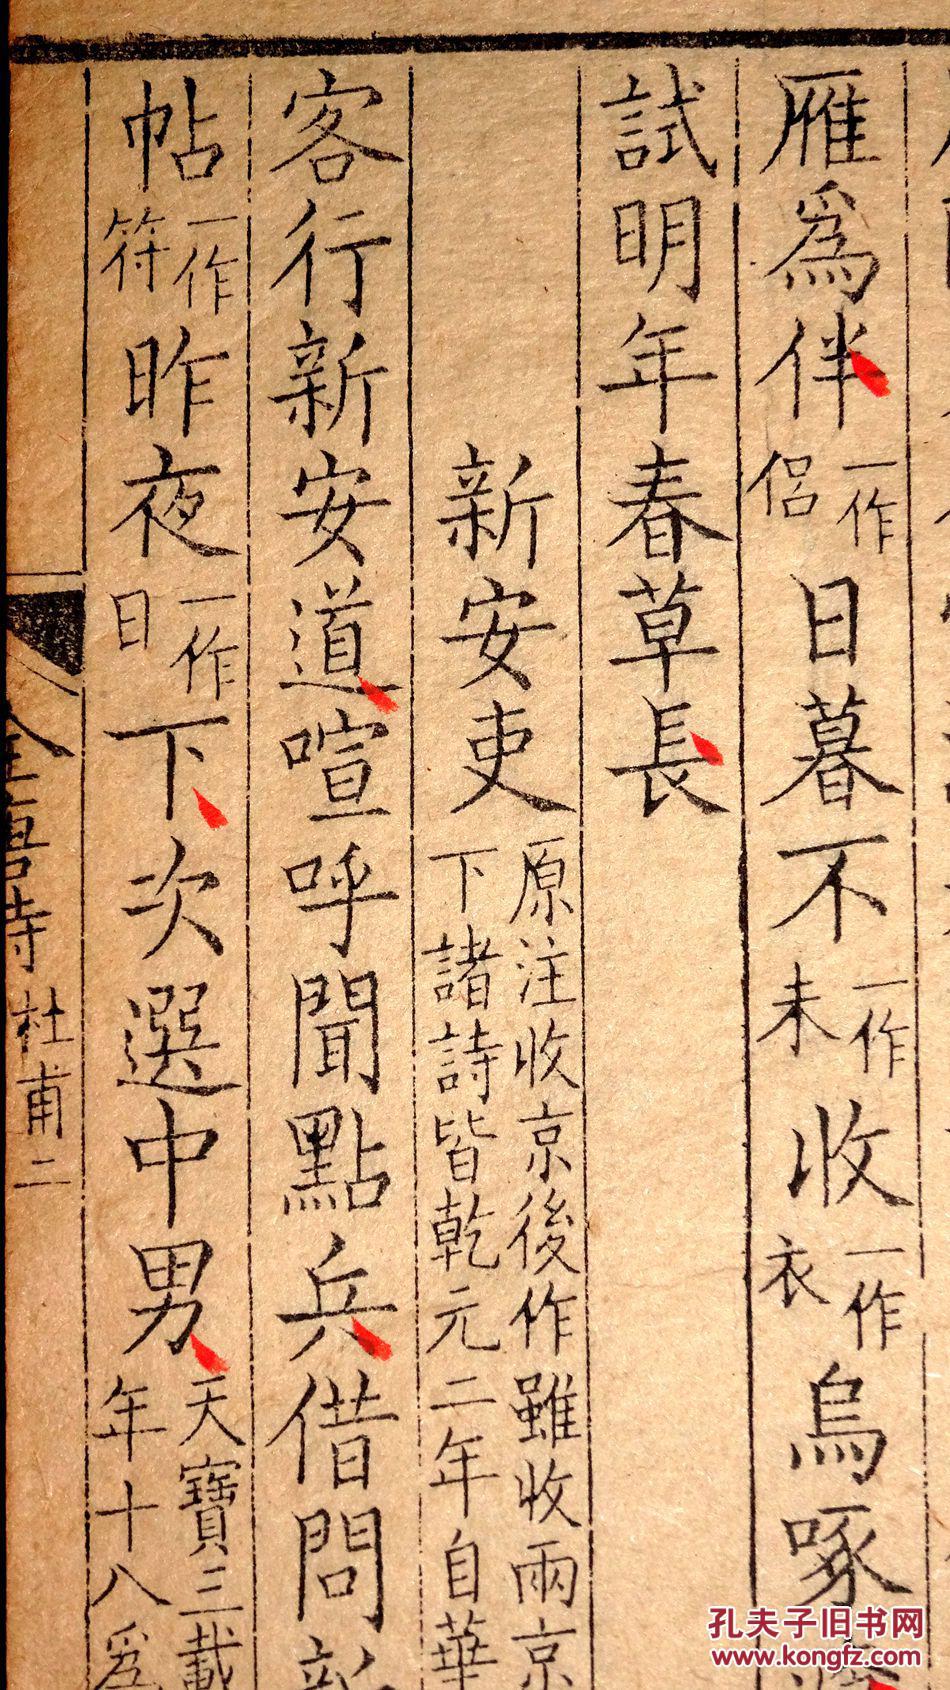 雁爲伴一作侶日暮不一作未收一作衣烏啄
試明年春草長
新安吏原注收京後作雖收兩京
下諸詩皆乾元二年自華
客行新安道喧呼聞點兵借問新
帖一作符昨夜一作日下次選中男天寶三載
年十八爲
全唐詩 杜甫二
孔夫子旧书网
www.kongfz.com